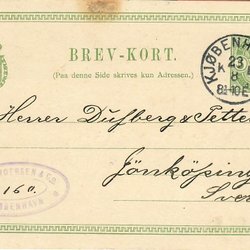 BREV-KORT.
(Paa denne Side skrives kun Adressen.)
KJØBENH
23
K 8
8-10E
Herrer Dufberg & Pette
Jönköping
Sve
& Co.
160.